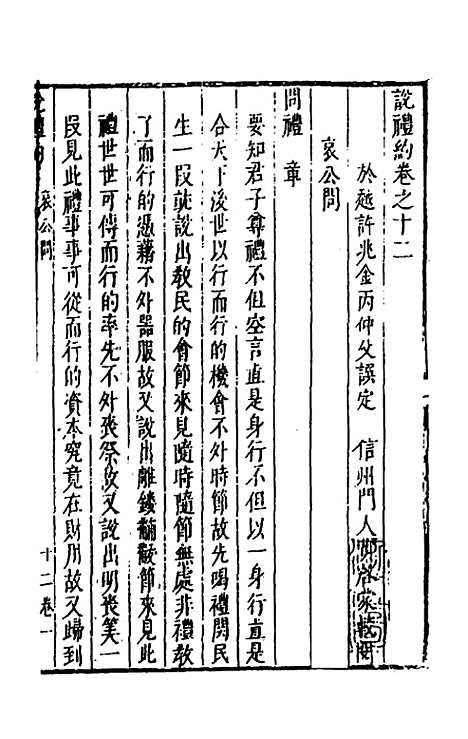 說禮約卷之十二
於越許兆金丙仲父譔定 信州門人鄭
哀公問
問禮 章
要知君子尊禮不但空言直是身行不但以一身行直是
合天下後世以行而行的機會不外時節故先喝禮開民
生一段就說出教民的會節來見隨時隨節無處非禮教
了而行的憑藉不外器服故又說出雕鏤黼黻節來見此
禮世世可傳而行的率先不外喪祭故又說出明喪筭一
段見此禮事事可從而行的資本究竟在財用故又歸到
哀公問
十二卷 一